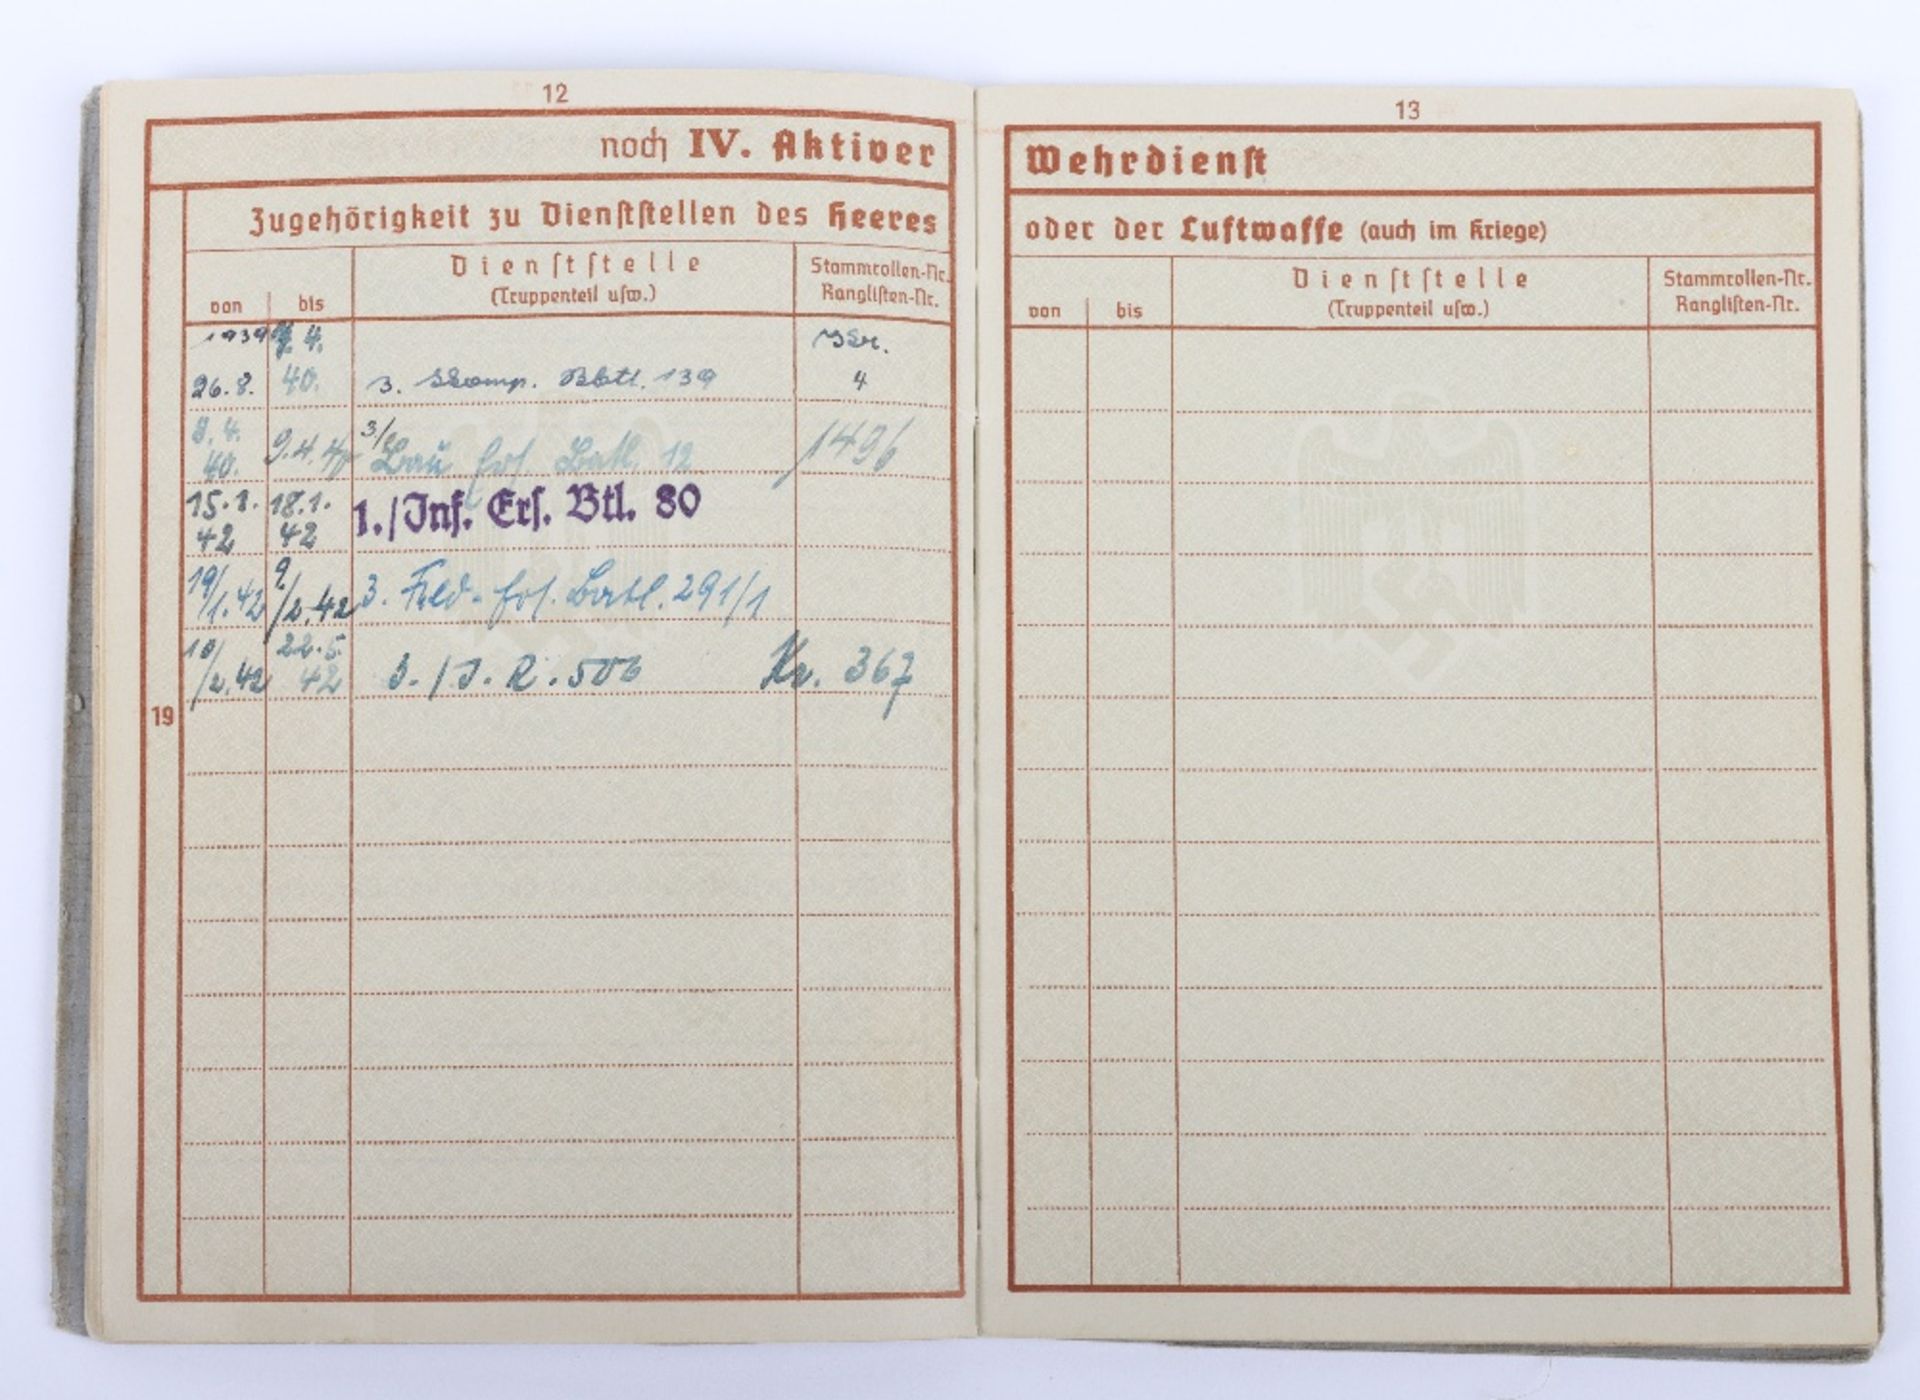 12
noch IV. Aktiver
Zugehörigkeit zu Dienststellen des Heeres
von
bis
Dienststelle
(Truppenteil usw.)
Stammrollen-Nr.
Ranglisten-Nr.
1939
4.
26.8.
40.
3. Komp. Batl. 139
4
8.4.
40.
9.4.
3/Bau Ers. Batl. 12
1496
15.1.
42
18.1.
42
1./Inf. Ers. Btl. 80
19/1.42
9/2.42
3. Feld-Ers. Batl. 291/1
10/2.42
22.5.
42
3./J.R. 506
Kr. 367
19
13
Wehrdienst
oder der Luftwaffe (auch im Kriege)
von
bis
Dienststelle
(Truppenteil usw.)
Stammrollen-Nr.
Ranglisten-Nr.